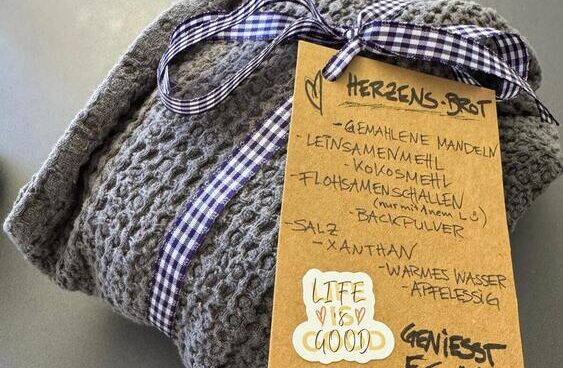 HERZENS-BROT
- GEMAHLENE MANDELN
- LEINSAMENMEHL
- KOKOSMEHL
- FLOHSAMENSCHALEN
(nur mit einem L ☺)
- BACKPULVER
- SALZ
- XANTHAN
- WARMES WASSER
- APFELESSIG
LIFE
IS
GOOD
GENIESST